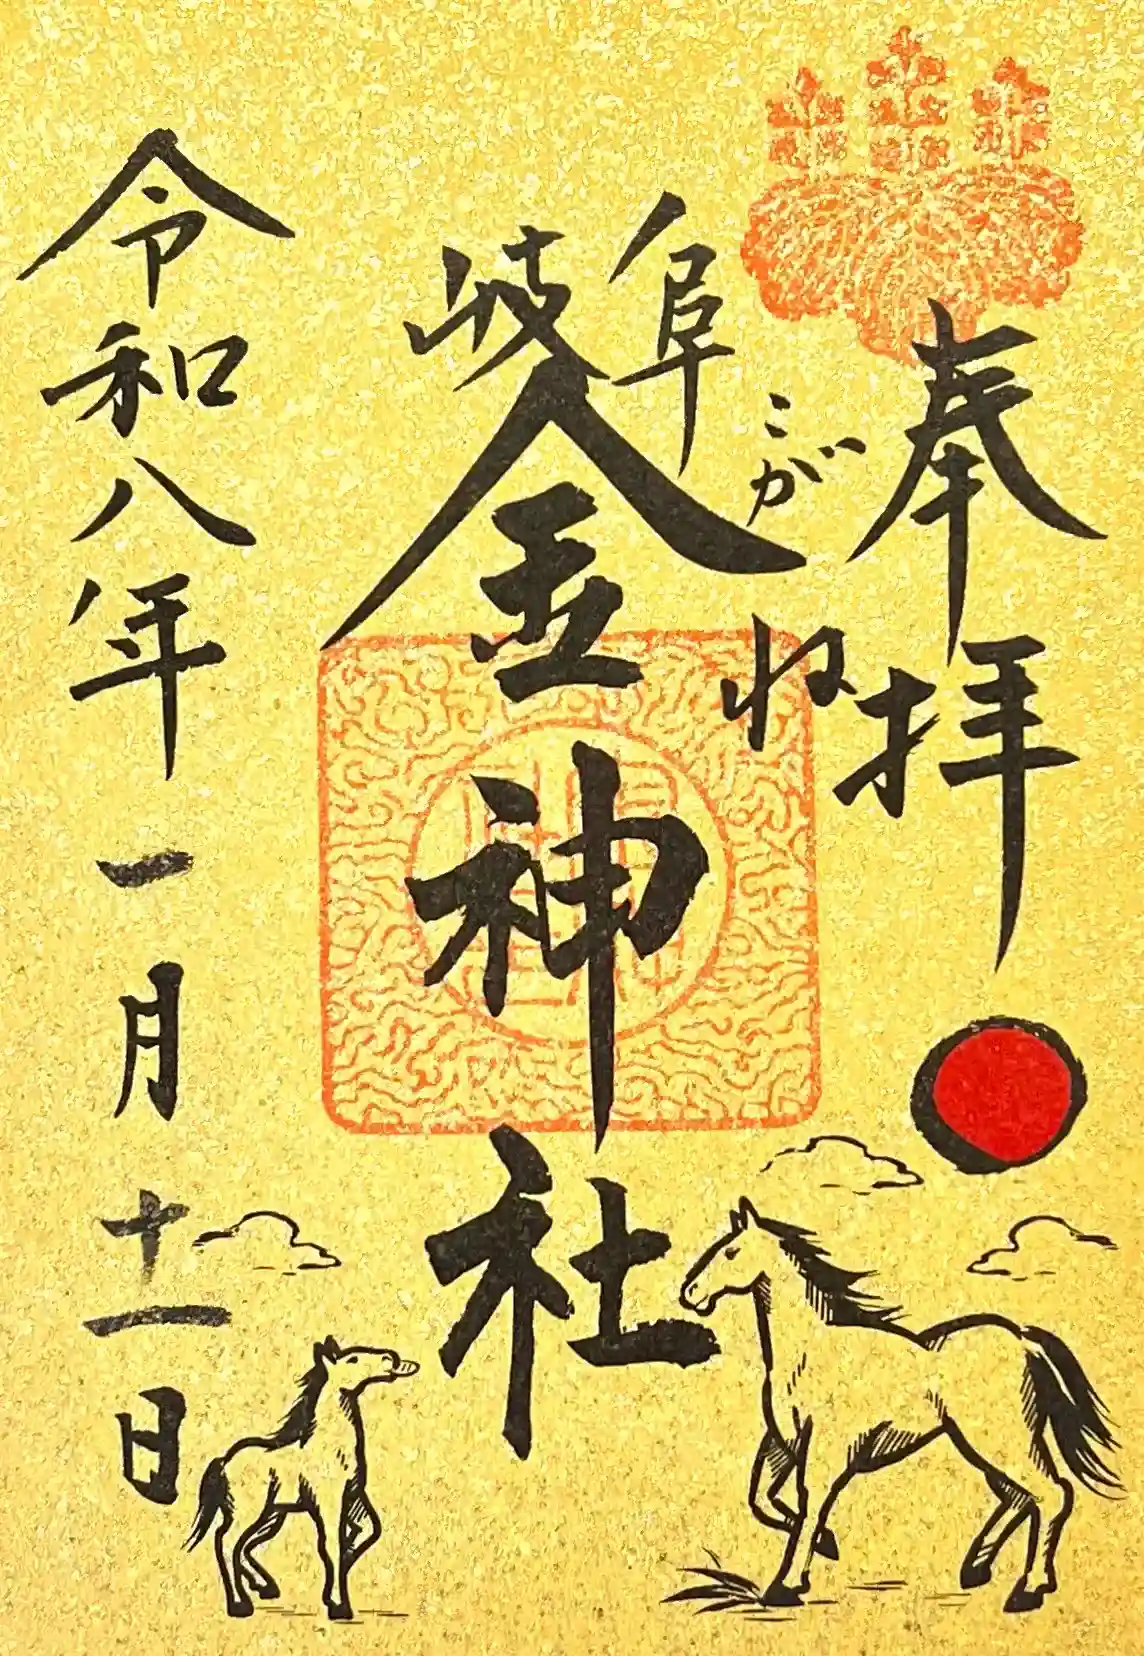 奉拝
岐阜
こがね
金神社
令和八年一月十一日